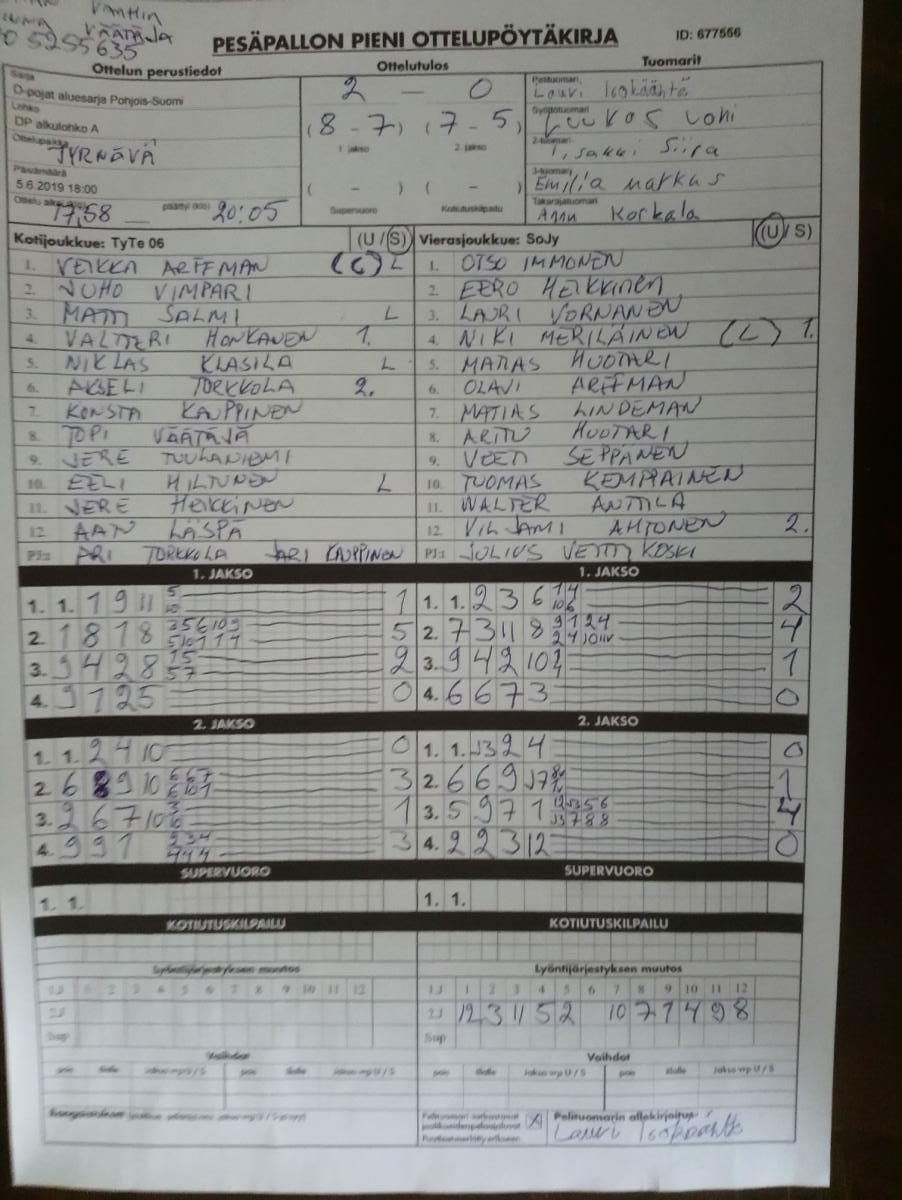 VANHIN
VÄÄTÄJÄ
5255635
PESÄPALLON PIENI OTTELUPÖYTÄKIRJA
ID: 677556
Ottelun perustiedot Ottelutulos Tuomarit
Sarja
D-pojat aluesarja Pohjois-Suomi
Lohko
DP alkulohko A
Ottelupaikka
TYRNÄVÄ
Päivämäärä
5.6.2019 18:00
Ottelu alkoi (klo) 17,58 päättyi (klo) 20:05
2 — 0
(8 - 7) (7 - 5)
1. jakso 2. jakso
( - ) ( - )
Supervuoro Kotiutuskilpailu
Pelituomari
Lauri Isokääntä
Syöttötuomari
Luukas Lohi
2-tuomari
Iisakki Siira
3-tuomari
Emilia Markus
Takarajatuomari
Annu Korkala
Kotijoukkue: TyTe 06 (U / S) Vierasjoukkue: SoJy (U / S)
1. VEIKKA ARFFMAN (C) L 1. OTSO IMMONEN
2. JUHO VIMPARI 2. EERO HEIKKINEN
3. MATTI SALMI L 3. LAURI VORNANEN
4. VALTTERI HONKANEN 1. 4. NIKI MERILÄINEN (L) 1.
5. NIKLAS KLASILA L 5. MATIAS HUOTARI
6. AKSELI TORKKOLA 2. 6. OLAVI ARFFMAN
7. KONSTA KAUPPINEN 7. MATIAS LINDEMAN
8. TOPI VÄÄTÄJÄ 8. ARTTU HUOTARI
9. JERE TUULANIEMI 9. VEETI SEPPÄNEN
10. EELI HILTUNEN L 10. TUOMAS KEMPPAINEN
11. JERE HEIKKINEN 11. WALTER ANTTILA
12. AAN LÄSPÄ 12. VILJAMI AHTONEN 2.
PJ:t ARI TORKKOLA JARI KAUPPINEN PJ:t JULIUS VETTIKOSKI
1. JAKSO 1. JAKSO
1. 1. 1 9 11 5 10 1 1. 1. 2 3 6 1 4 10 6 2
2. 1 8 1 8 3 5 6 10 9 5 10 1 1 1 5 2. 7 3 11 8 9 1 2 4 2 4 10 4
3. 9 4 2 8 1 5 5 7 2 3. 9 4 2 10 1
4. 9 1 2 5 0 4. 6 6 7 3 0
2. JAKSO 2. JAKSO
1. 1. 2 4 10 0 1. 1. J3 2 4 0
2. 6 8 9 10 6 6 7 6 10 1 3 2. 6 6 9 J7 1
3. 2 6 7 10 3 10 1 3. 5 9 7 1 12 J3 5 6 J3 7 8 8 4
4. 9 9 1 2 3 4 4 4 4 3 4. 2 2 3 12 0
SUPERVUORO SUPERVUORO
1. 1. 1. 1.
KOTIUTUSKILPAILU KOTIUTUSKILPAILU
Lyöntijärjestyksen muutos Lyöntijärjestyksen muutos
1.J 1 2 3 4 5 6 7 8 9 10 11 12 1.J 1 2 3 4 5 6 7 8 9 10 11 12
2.J 2.J 12 3 11 5 2 10 7 1 4 9 8
Sup Sup
Vaihdot Vaihdot
pois tilalle Jakso vrp U / S pois tilalle Jakso vrp U / S pois tilalle Jakso vrp U / S pois tilalle Jakso vrp U / S
X
Pelituomarin allekirjoitus
Lauri Isokääntä